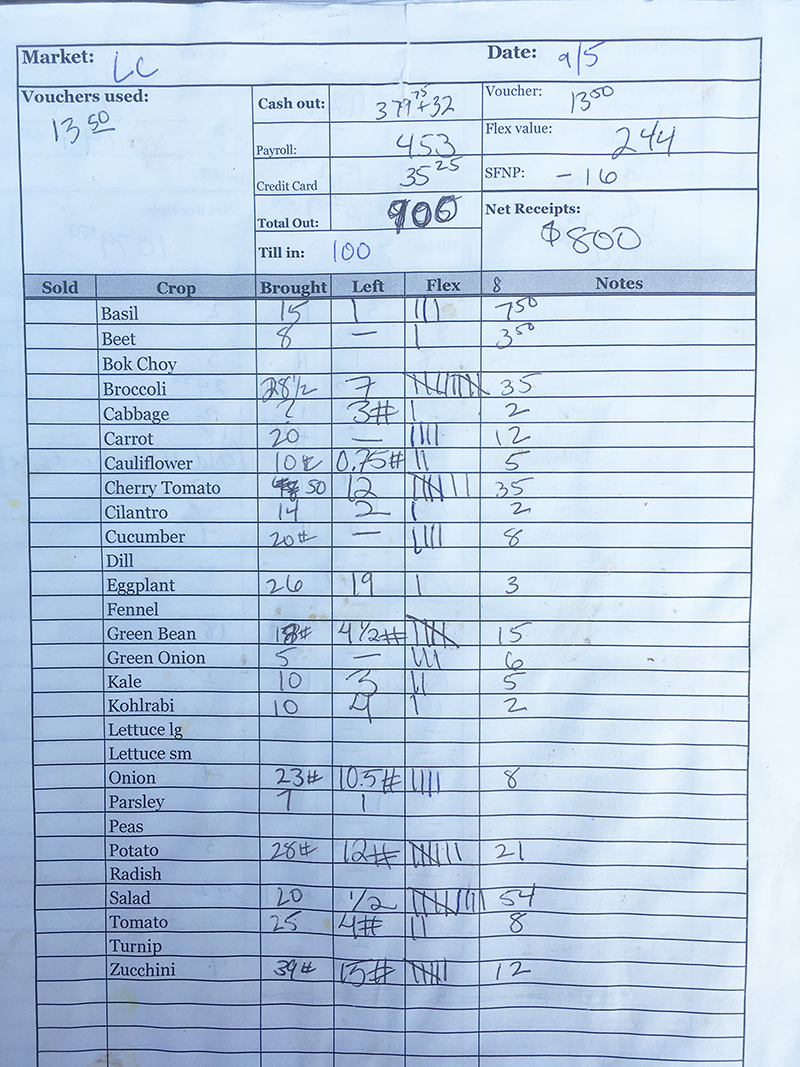 Market: LC Date: 9/5
Vouchers used: 13 50
Cash out: 379 75 + 32
Voucher: 13 50
Payroll: 453
Flex value: 244
Credit Card 35 25
SFNP: - 16
Total Out: 900
Net Receipts: $800
Till in: 100
Sold Crop Brought Left Flex $ Notes
Basil 15 1 ||| 7 50
Beet 8 — | 3 50
Bok Choy
Broccoli 28 1/2 7 35
Cabbage ? 3# | 2
Carrot 20 — |||| 12
Cauliflower 10# 0.75# || 5
Cherry Tomato 50 12 35
Cilantro 14 2 | 2
Cucumber 20# — |||| 8
Dill
Eggplant 26 19 | 3
Fennel
Green Bean 18# 4 1/2# 15
Green Onion 5 — ||| 6
Kale 10 3 || 5
Kohlrabi 10 4 | 2
Lettuce lg
Lettuce sm
Onion 23# 10.5# |||| 8
Parsley 7 1
Peas
Potato 28# 12# 21
Radish
Salad 20 1/2 54
Tomato 25 4# || 8
Turnip
Zucchini 39# 15# 12